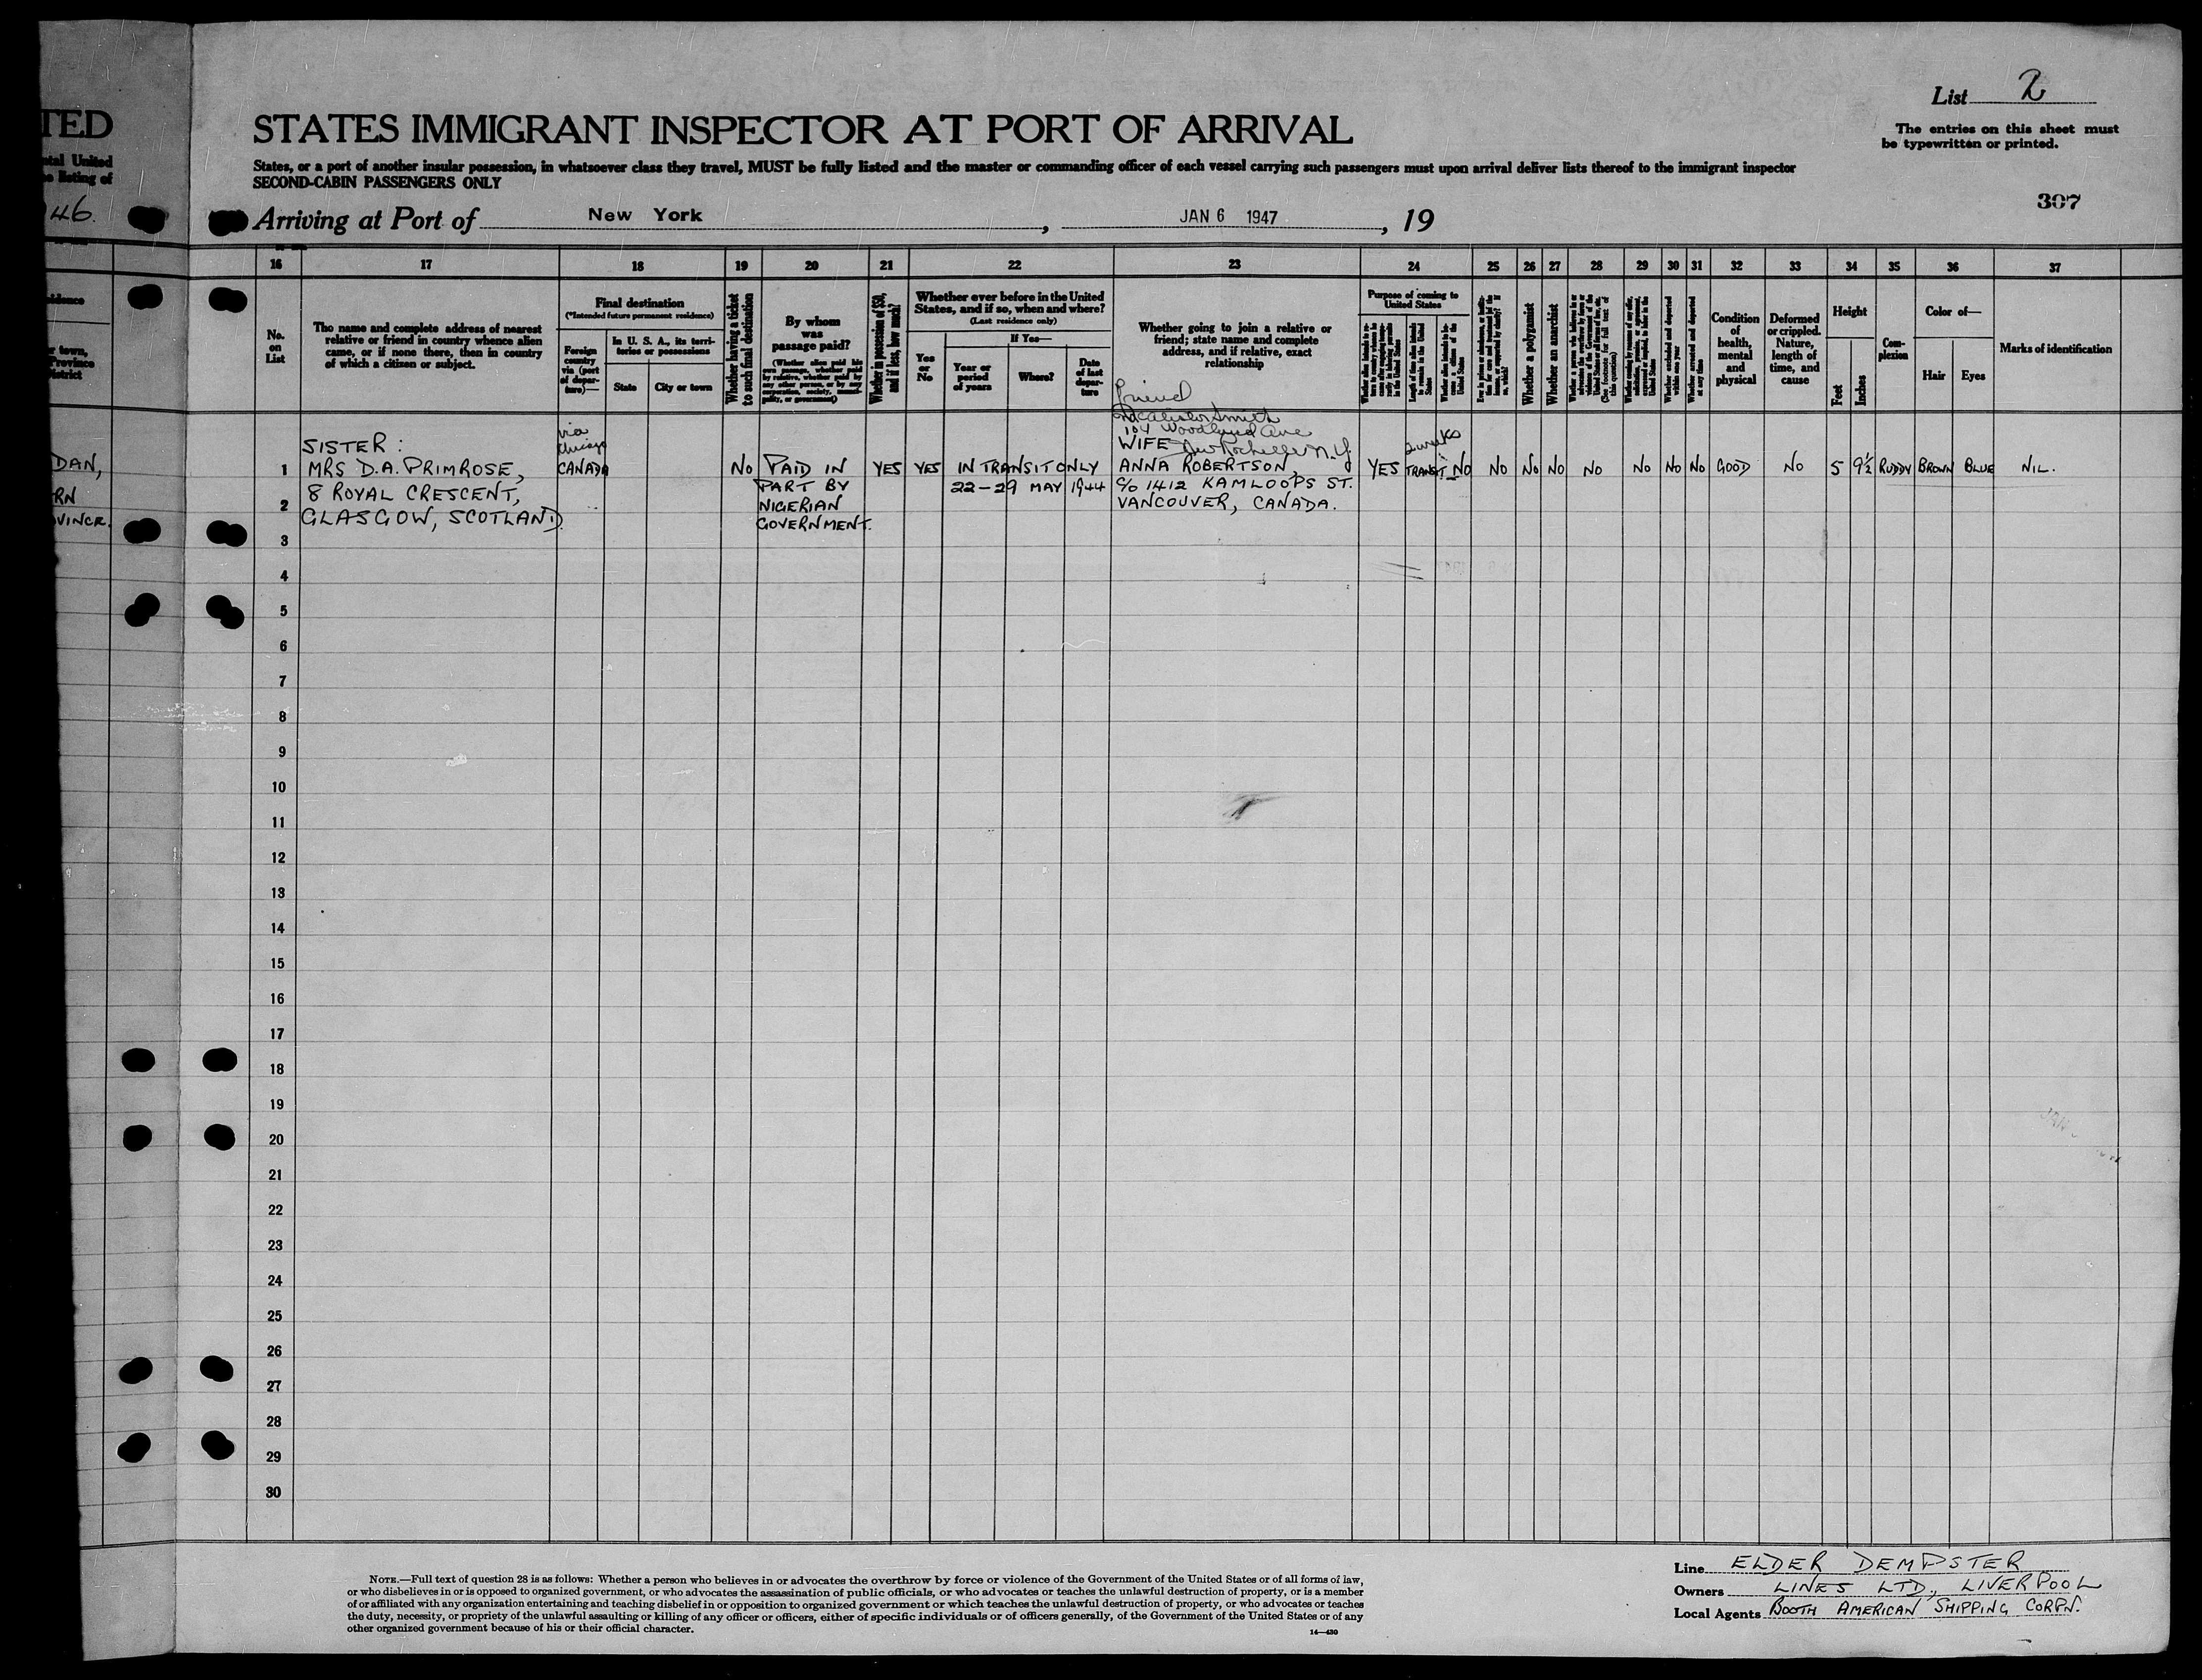 List 2
The entries on this sheet must
be typewritten or printed.
TED
STATES IMMIGRANT INSPECTOR AT PORT OF ARRIVAL
ntal United
States, or a port of another insular possession, in whatsoever class they travel, MUST be fully listed and the master or commanding officer of each vessel carrying such passengers must upon arrival deliver lists thereof to the immigrant inspector
listing of
SECOND-CABIN PASSENGERS ONLY
307
46.
Arriving at Port of New York, JAN 6 1947, 19
16 17 18 19 20 21 22 23 24 25 26 27 28 29 30 31 32 33 34 35 36 37
No.
on
List
The name and complete address of nearest
relative or friend in country whence alien
came, or if none there, then in country
of which a citizen or subject.
Final destination
(*Intended future permanent residence)
Foreign
country
via (port
of depar-
ture)—
In U. S. A., its terri-
tories or possessions
State
City or town
Whether having a ticket
to such final destination
By whom
was
passage paid?
(Whether alien paid his
own passage, whether paid
by relative, whether paid by
any other person, or by any
corporation, society, munici-
pality, or government)
Whether in possession of $50,
and if less, how much?
Whether ever before in the United
States, and if so, when and where?
(Last residence only)
Yes
or
No
If Yes—
Year or
period
of years
Where?
Date
of last
depar-
ture
Whether going to join a relative or
friend; state name and complete
address, and if relative, exact
relationship
Purpose of coming to
United States
Length of time alien intends
to remain in the United
States
Whether alien intends to be-
come a citizen of the
United States
Whether a polygamist
Whether an anarchist
(See footnote for full text of
this question)
Whether arrested and deported
at any time
Condition
of
health,
mental
and
physical
Deformed
or crippled.
Nature,
length of
time, and
cause
Height
Feet
Inches
Com-
plexion
Color of—
Hair
Eyes
Marks of identification
DAN,
RN
VINCE.
Friend
Smith
104 Woodland Ave
New Rochelle N.Y.
via
Chicago
2 weeks
SISTER :
WIFE
1 MRS D.A. PRIMROSE, CANADA NO PAID IN YES YES IN TRANSIT ONLY ANNA ROBERTSON, YES TRANSIT NO NO NO NO NO NO NO NO GOOD NO 5 9½ RUDDY BROWN BLUE NIL.
8 ROYAL CRESCENT, PART BY 22–29 MAY 1944 C/O 1412 KAMLOOPS ST.
2 GLASGOW, SCOTLAND. NIGERIAN VANCOUVER, CANADA.
GOVERNMENT.
3
4
5
6
7
8
9
10
11
12
13
14
15
16
17
18
19
20
21
22
23
24
25
26
27
28
29
30
NOTE.—Full text of question 28 is as follows: Whether a person who believes in or advocates the overthrow by force or violence of the Government of the United States or of all forms of law,
or who disbelieves in or is opposed to organized government, or who advocates the assassination of public officials, or who advocates or teaches the unlawful destruction of property, or is a member
of or affiliated with any organization entertaining and teaching disbelief in or opposition to organized government or which teaches the unlawful destruction of property, or who advocates or teaches
the duty, necessity, or propriety of the unlawful assaulting or killing of any officer or officers, either of specific individuals or of officers generally, of the Government of the United States or of any
other organized government because of his or their official character.
14—430
Line ELDER DEMPSTER
Owners LINES LTD., LIVERPOOL
Local Agents BOOTH AMERICAN SHIPPING CORPN.